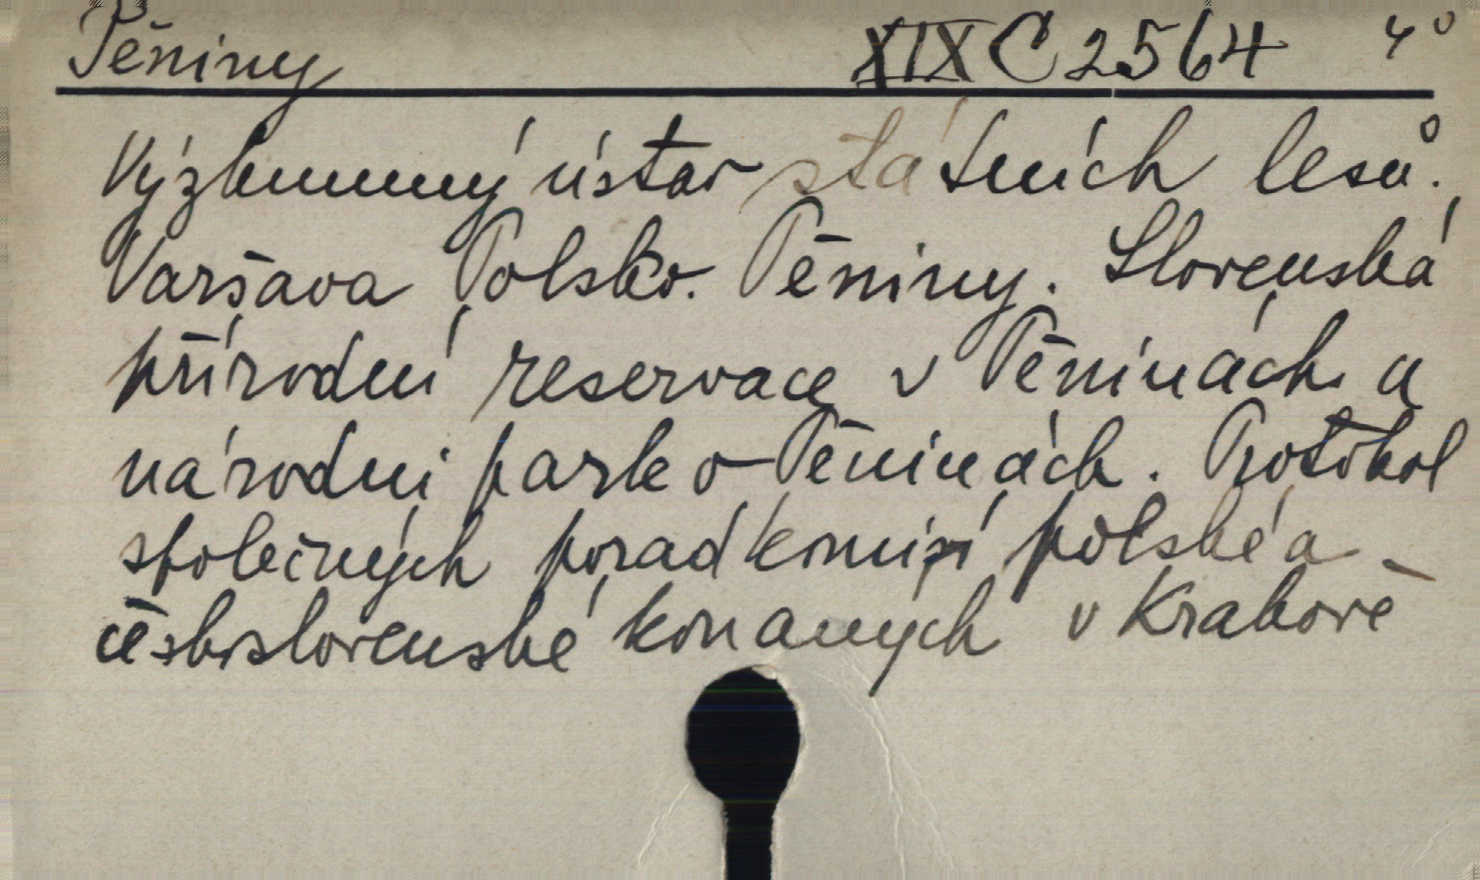 Pěniny XIX C 2564 4°
Výzkumný ústav státních lesů.
Varšava Polsko. Pěniny. Slovenská
přírodní reservace v Pěninách a
národni park v Pěninách. Protokol
společných porad komisí polské a
československé konaných v Krakově